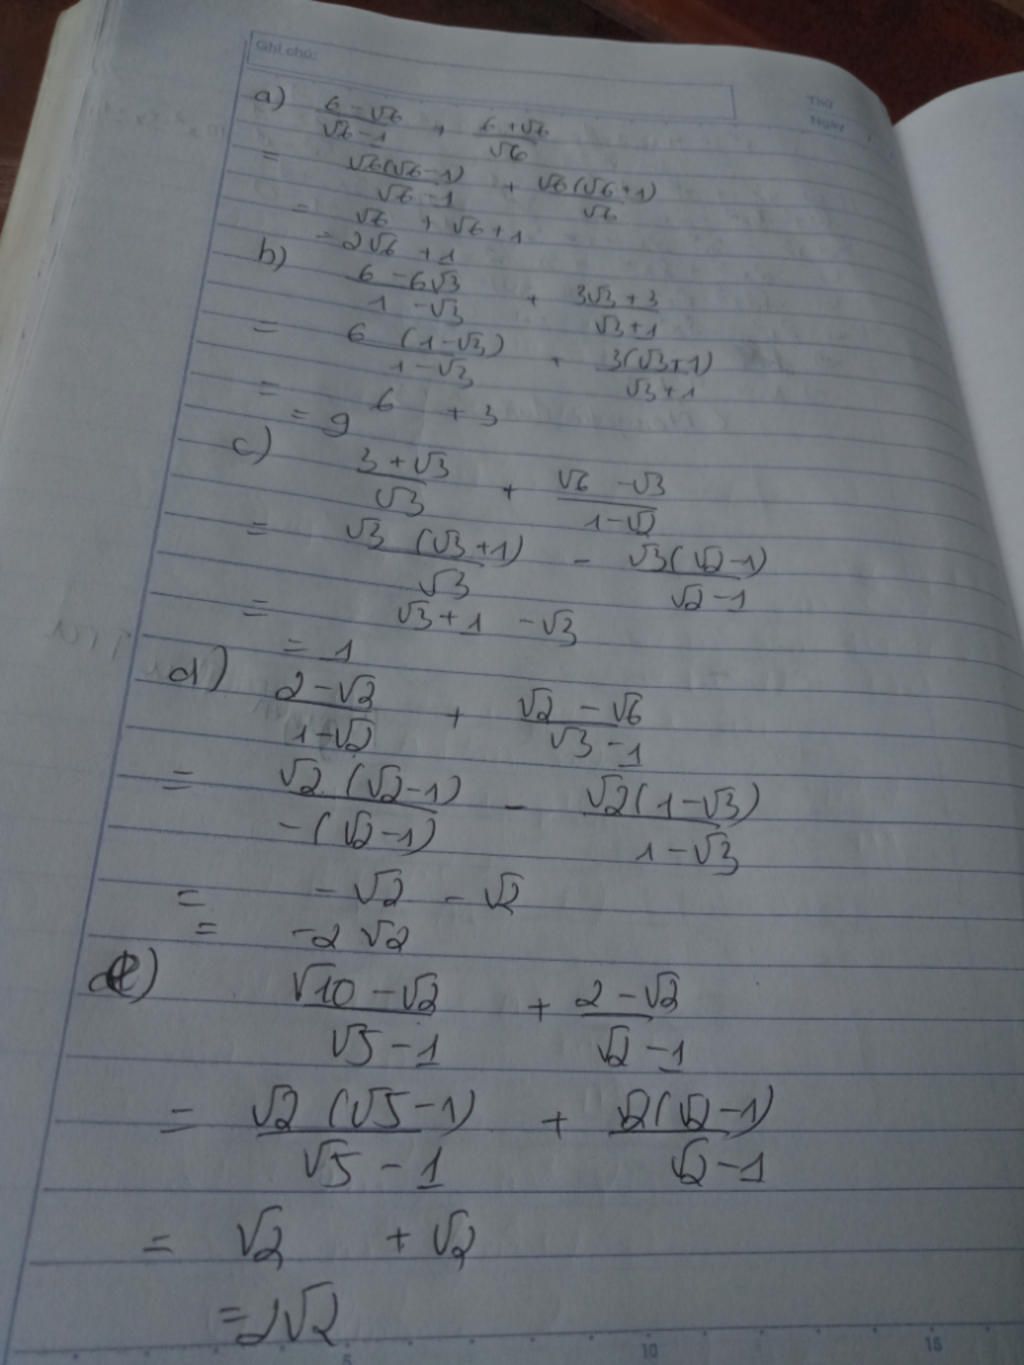 Ghi chú:
Thứ
Ngày
a) (6 - √6)/(√6 - 1) + (6 + √6)/√6
= √6(√6 - 1)/(√6 - 1) + √6(√6 + 1)/√6
= √6 + √6 + 1
= 2√6 + 1
b) (6 - 6√3)/(1 - √3) + (3√3 + 3)/(√3 + 1)
= 6(1 - √3)/(1 - √3) + 3(√3 + 1)/(√3 + 1)
= 6 + 3
= 9
c) (3 + √3)/√3 + (√6 - √3)/(1 - √2)
= √3(√3 + 1)/√3 - √3(√2 - 1)/(√2 - 1)
= √3 + 1 - √3
= 1
d) (2 - √2)/(1 - √2) + (√2 - √6)/(√3 - 1)
= √2(√2 - 1)/-(√2 - 1) - √2(1 - √3)/(1 - √3)
= -√2 - √2
= -2√2
e) (√10 - √2)/(√5 - 1) + (2 - √2)/(√2 - 1)
= √2(√5 - 1)/(√5 - 1) + √2(√2 - 1)/(√2 - 1)
= √2 + √2
= 2√2
5 10 15